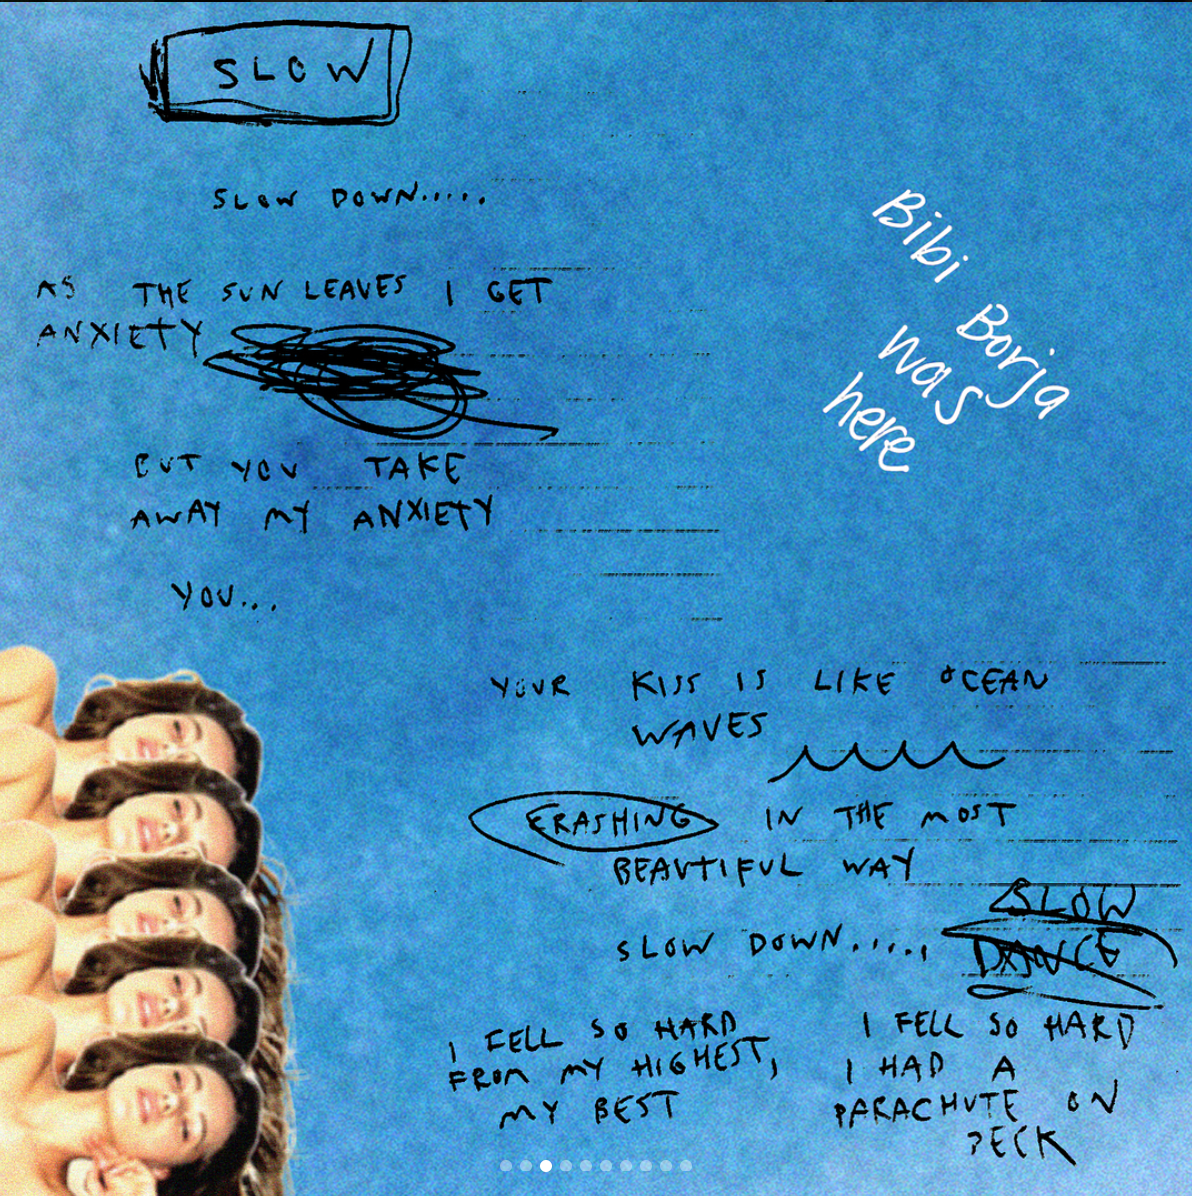 SLOW
SLOW DOWN.....
AS THE SUN LEAVES I GET
ANXIETY
BUT YOU TAKE
AWAY MY ANXIETY
YOU...
Bibi Borja
was
here
YOUR KISS IS LIKE OCEAN
WAVES
CRASHING IN THE MOST
BEAUTIFUL WAY
SLOW DOWN.....,
SLOW
DANCE
I FELL SO HARD
FROM MY HIGHEST,
MY BEST
I FELL SO HARD
I HAD A
PARACHUTE ON
DECK